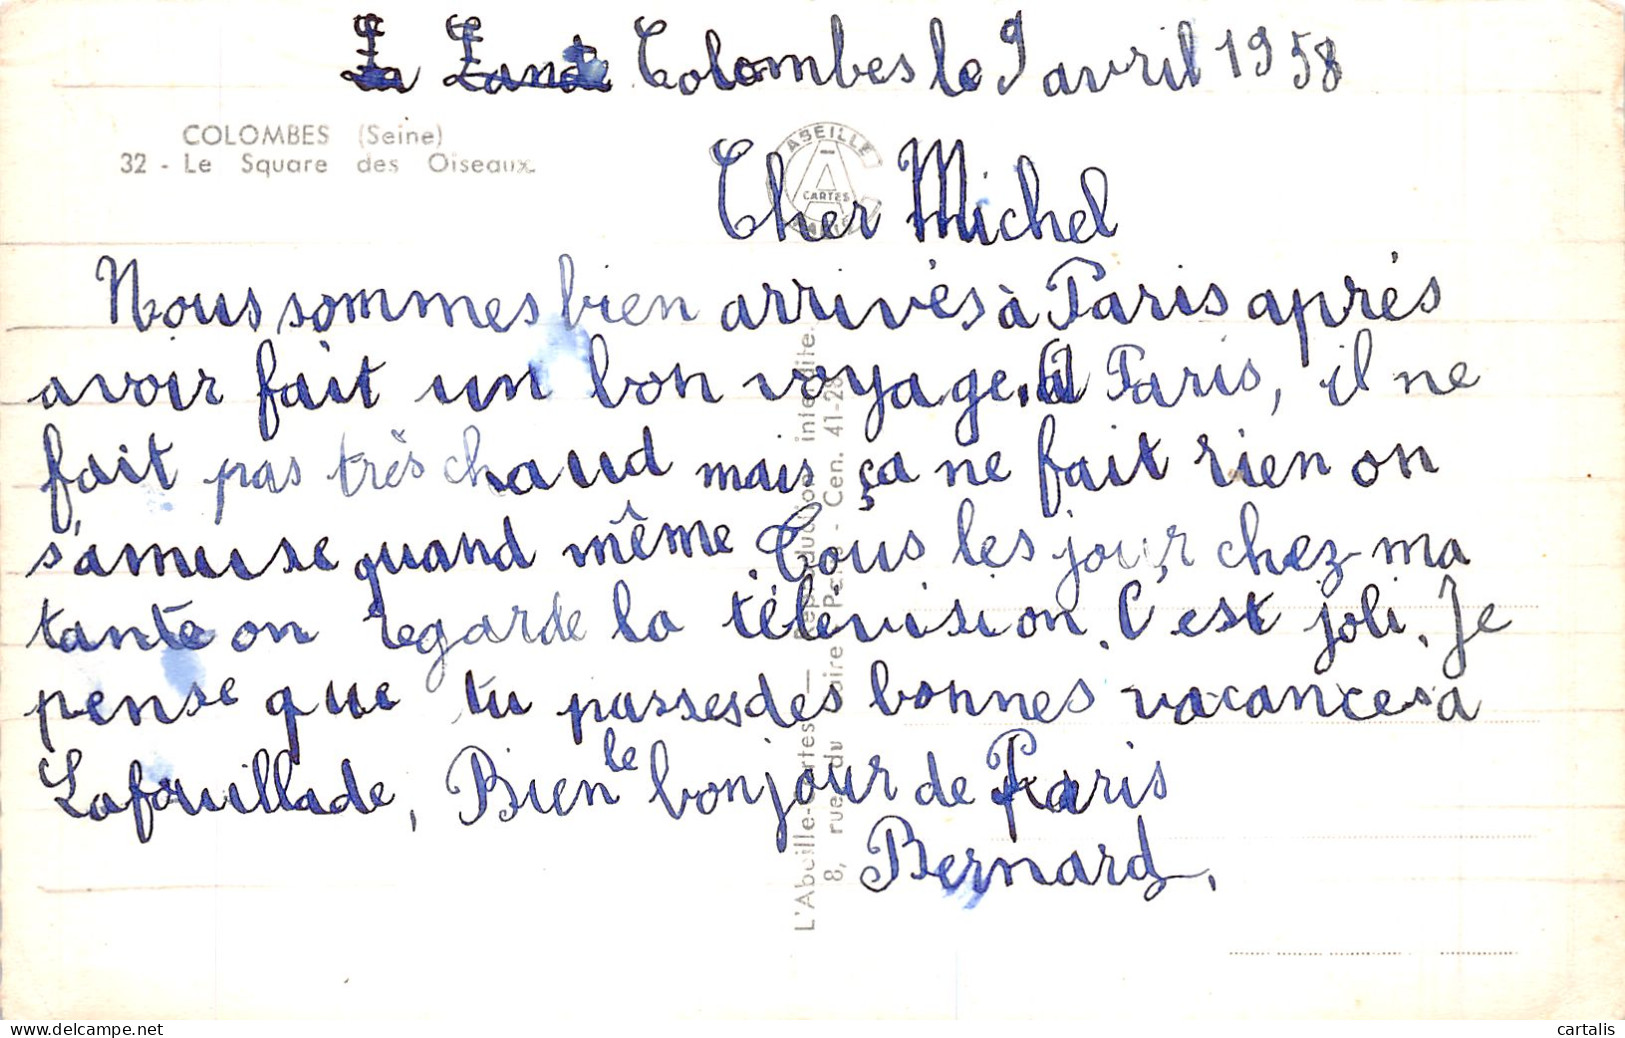 Colombes le 9 avril 1958
COLOMBES (Seine)
32 - Le Square des Oiseaux
ABEILLE
A
CARTES
Cher Michel
Nous sommes bien arrivés à Paris après
avoir fait un bon voyage. A Paris, il ne
fait pas très chaud mais ça ne fait rien on
s'amuse quand même. Tous les jour chez ma
tante on regarde la télévision. C'est joli. Je
pense que tu passes des bonnes vacances à
Lafouillade, Bien le bonjour de Paris
Bernard.
L'Abeille-Cartes — Reproduction interdite
8, rue du Caire Paris - Cen. 41-28
delcampe.net
cartalis